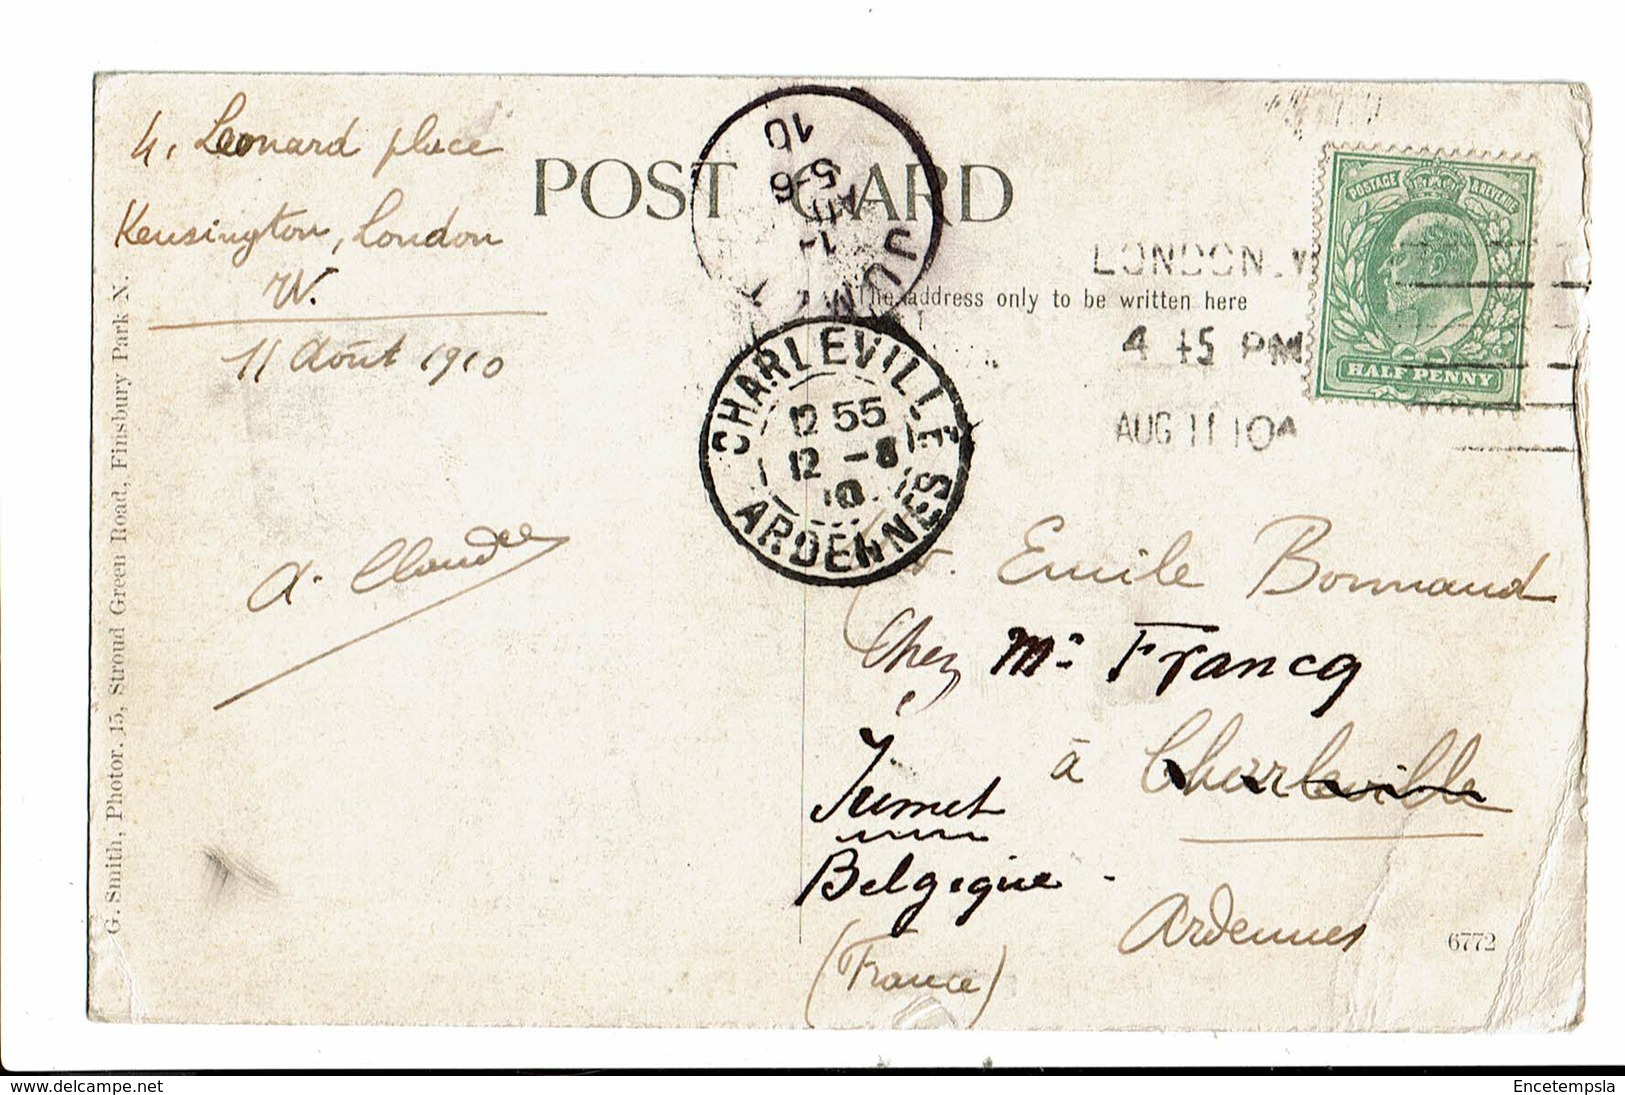 4, Leonard place
Kensington, London
W.
11 Août 1910
A. Claudel
POST CARD
The address only to be written here
JUMET
1-
AU
5-6
10
CHARLEVILLE
12 55
12 -8
10
ARDENNES
LONDON. W
4 45 PM
AUG 11 10A
POSTAGE & REVENUE
HALF PENNY
Emile Bormand
Chez Mr Francq
à Charleville
Jumet
Belgique
Ardennes
(France)
6772
G. Smith, Photor. 15, Stroud Green Road, Finsbury Park N.
www.delcampe.net
Encetempsla